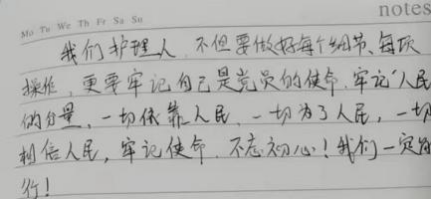 notes
Mo Tu We Th Fr Sa Su
我们护理人,不但要做好每个细节、每项
操作,更要牢记自己是党员的使命,牢记"人民"
的分量,一切依靠人民,一切为了人民,一切
相信人民,牢记使命,不忘初心!我们一定
行!